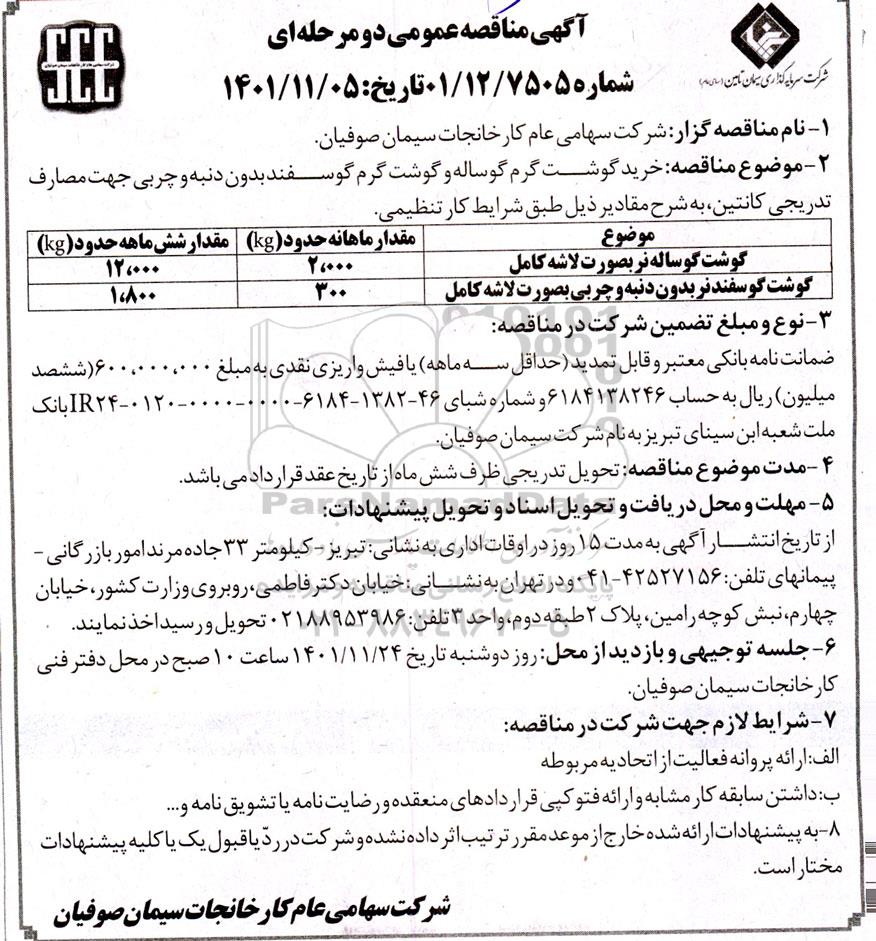 آگهی مناقصه عمومی دو مرحله‌ای
شماره ۰۱/۱۲/۷۵۰۵ تاریخ: ۱۴۰۱/۱۱/۰۵
شرکت سرمایه گذاری سیمان تامین (سهامی عام)
S.C.C
شرکت سهامی عام کارخانجات سیمان صوفیان
۱- نام مناقصه گزار: شرکت سهامی عام کارخانجات سیمان صوفیان.
۲- موضوع مناقصه: خرید گوشت گرم گوساله و گوشت گرم گوسفند بدون دنبه و چربی جهت مصارف
تدریجی کانتین، به شرح مقادیر ذیل طبق شرایط کار تنظیمی.
موضوع مقدار ماهانه حدود (kg) مقدار شش ماهه حدود (kg)
گوشت گوساله نر بصورت لاشه کامل ۲،۰۰۰ ۱۲،۰۰۰
گوشت گوسفند نر بدون دنبه و چربی بصورت لاشه کامل ۳۰۰ ۱،۸۰۰
۳- نوع و مبلغ تضمین شرکت در مناقصه:
ضمانت نامه بانکی معتبر و قابل تمدید (حداقل سه ماهه) یا فیش واریزی نقدی به مبلغ ۶۰۰،۰۰۰،۰۰۰ (ششصد
میلیون) ریال به حساب ۶۱۸۴۱۳۸۲۴۶ و شماره شبای ۴۶-۱۳۸۲-۶۱۸۴-۰۰۰۰-۰۰۰۰-۰۱۲۰-IR۲۴ بانک
ملت شعبه ابن سینای تبریز به نام شرکت سیمان صوفیان.
۴- مدت موضوع مناقصه: تحویل تدریجی ظرف شش ماه از تاریخ عقد قرارداد می باشد.
ParsNamadData
۵- مهلت و محل دریافت و تحویل اسناد و تحویل پیشنهادات:
از تاریخ انتشار آگهی به مدت ۱۵ روز در اوقات اداری به نشانی: تبریز - کیلومتر ۳۳ جاده مرند امور بازرگانی -
پیمانهای تلفن: ۴۲۵۲۷۱۵۶-۰۴۱ و در تهران به نشانی: خیابان دکتر فاطمی، روبروی وزارت کشور، خیابان
چهارم، نبش کوچه رامین، پلاک ۲ طبقه دوم، واحد ۳ تلفن: ۰۲۱۸۸۹۵۳۹۸۶ تحویل و رسید اخذ نمایند.
۶- جلسه توجیهی و بازدید از محل: روز دوشنبه تاریخ ۱۴۰۱/۱۱/۲۴ ساعت ۱۰ صبح در محل دفتر فنی
کارخانجات سیمان صوفیان.
۷- شرایط لازم جهت شرکت در مناقصه:
الف: ارائه پروانه فعالیت از اتحادیه مربوطه
ب: داشتن سابقه کار مشابه و ارائه فتوکپی قراردادهای منعقده و رضایت نامه یا تشویق نامه و...
۸- به پیشنهادات ارائه شده خارج از موعد مقرر ترتیب اثر داده نشده و شرکت در ردّ یا قبول یک یا کلیه پیشنهادات
مختار است.
شرکت سهامی عام کارخانجات سیمان صوفیان